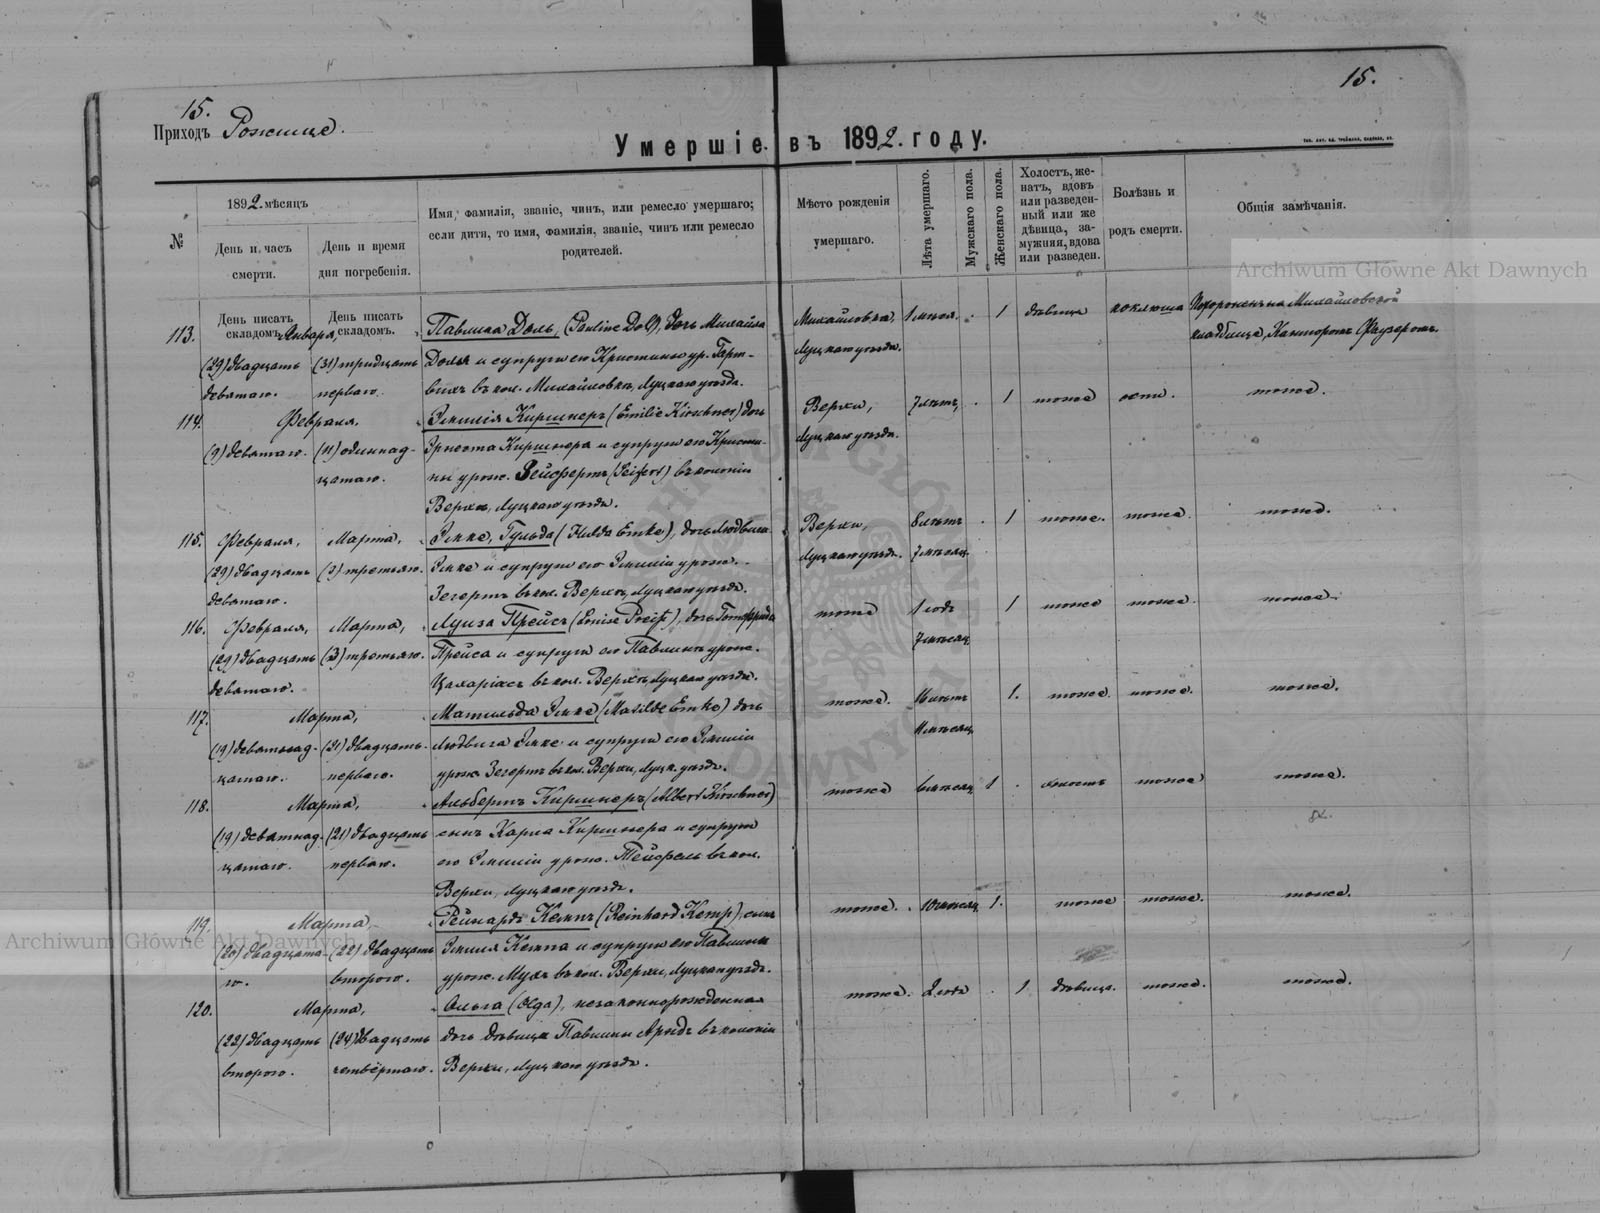 15.
15.
Приходъ Рожище.
Умершіе въ 1892 году.
№
1892 мѣсяцъ
День и часъ смерти.
День и время дня погребенія.
Имя, фамилія, званіе, чинъ, или ремесло умершаго;
если дитя, то имя, фамилія, званіе, чинъ или ремесло
родителей.
Мѣсто рожденія
умершаго.
Лѣта умершаго.
Мужскаго пола.
Женскаго пола.
Холостъ, же-
натъ, вдовъ
или разведен-
ный или же
дѣвица, за-
мужняя, вдова
или разведен.
Болѣзнь и
родъ смерти.
Общія замѣчанія.
День писать складомъ.
День писать складомъ.
113. Января, Павлина Доль, (Pauline Doll), дочь Михаила Михайловка, 1 1 дѣвица коклюша Похороненъ на Михайловской
(29) двадцать (31) тридцать Доля и супруги его Кристины ур. Гарт- Луцкаго уѣзда. кладбищѣ, Канторомъ
девятаго. перваго. вихъ въ кол. Михайловкѣ, Луцкаго уѣзда.
114. Февраля. Эмилія Киршнеръ (Emilie Kirschner) дочь Верхи, 7 лѣтъ, 1 тоже оспи. тоже.
(9) девятаго. (11) одиннад- Эрнста Киршнера и супруги его Кристи- Луцкаго уѣзда.
цатаго. ны урож. Зейфертъ (Seifert) въ колоніи
Верхи, Луцкаго уѣзда.
115. Февраля, Марта, Эмке, Гульда (Hulda Emke), дочь Людвига Верхи, 8 лѣтъ 1 тоже. тоже. тоже.
(29) двадцать (3) третьяго. Эмке и супруги его Эмиліи урож. Луцкаго уѣзда. 7 мѣсяц.
девятаго. Зегертъ въ кол. Верхи, Луцкаго уѣзда.
116. Февраля, Марта, Луиза Прейсъ (Louise Preiß), дочь Готфрида тоже 1 годъ 1 тоже тоже. тоже.
(29) двадцать (3) третьяго. Прейса и супруги его Павлины урож. 7 мѣсяц.
девятаго. Цахаріасъ въ кол. Верхи, Луцкаго уѣзда.
117. Марта, Матильда Эмке (Matilde Emke) дочь тоже. лѣтъ 1. тоже. тоже. тоже.
(19) девятнад- (21) двадцать Людвига Эмке и супруги его Эмиліи мѣсяц.
цатаго. перваго. урож. Зегертъ въ кол. Верхи, Луцк. уѣзда.
118. Марта, Альбертъ Киршнеръ (Albert Kirschner) тоже мѣсяц. 1 холостъ тоже тоже.
(19) девятнад- (21) двадцать сынъ Карла Киршнера и супруги
цатаго. перваго. его Эмиліи урож. Тейфель въ кол.
Верхи, Луцкаго уѣзда.
119. Марта, Рейнардъ Кемпъ (Reinhard Kemp), сынъ тоже. 10 мѣсяц. 1. тоже тоже. тоже.
(20) двадцата- (22) двадцать Эмиля Кемпа и супруги его Павлины
го. второго. урож. Мухъ въ кол. Верхи, Луцкаго уѣзда.
120. Марта, Ольга (Olga), незаконнорожденная тоже. 2 года 1 дѣвица. тоже. тоже.
(22) двадцать (24) двадцать дочь дѣвицы Павлины Арндъ въ колоніи
второго. четвёртаго. Верхи, Луцкаго уѣзда.
Archiwum Główne Akt Dawnych
Archiwum Główne Akt Dawnych